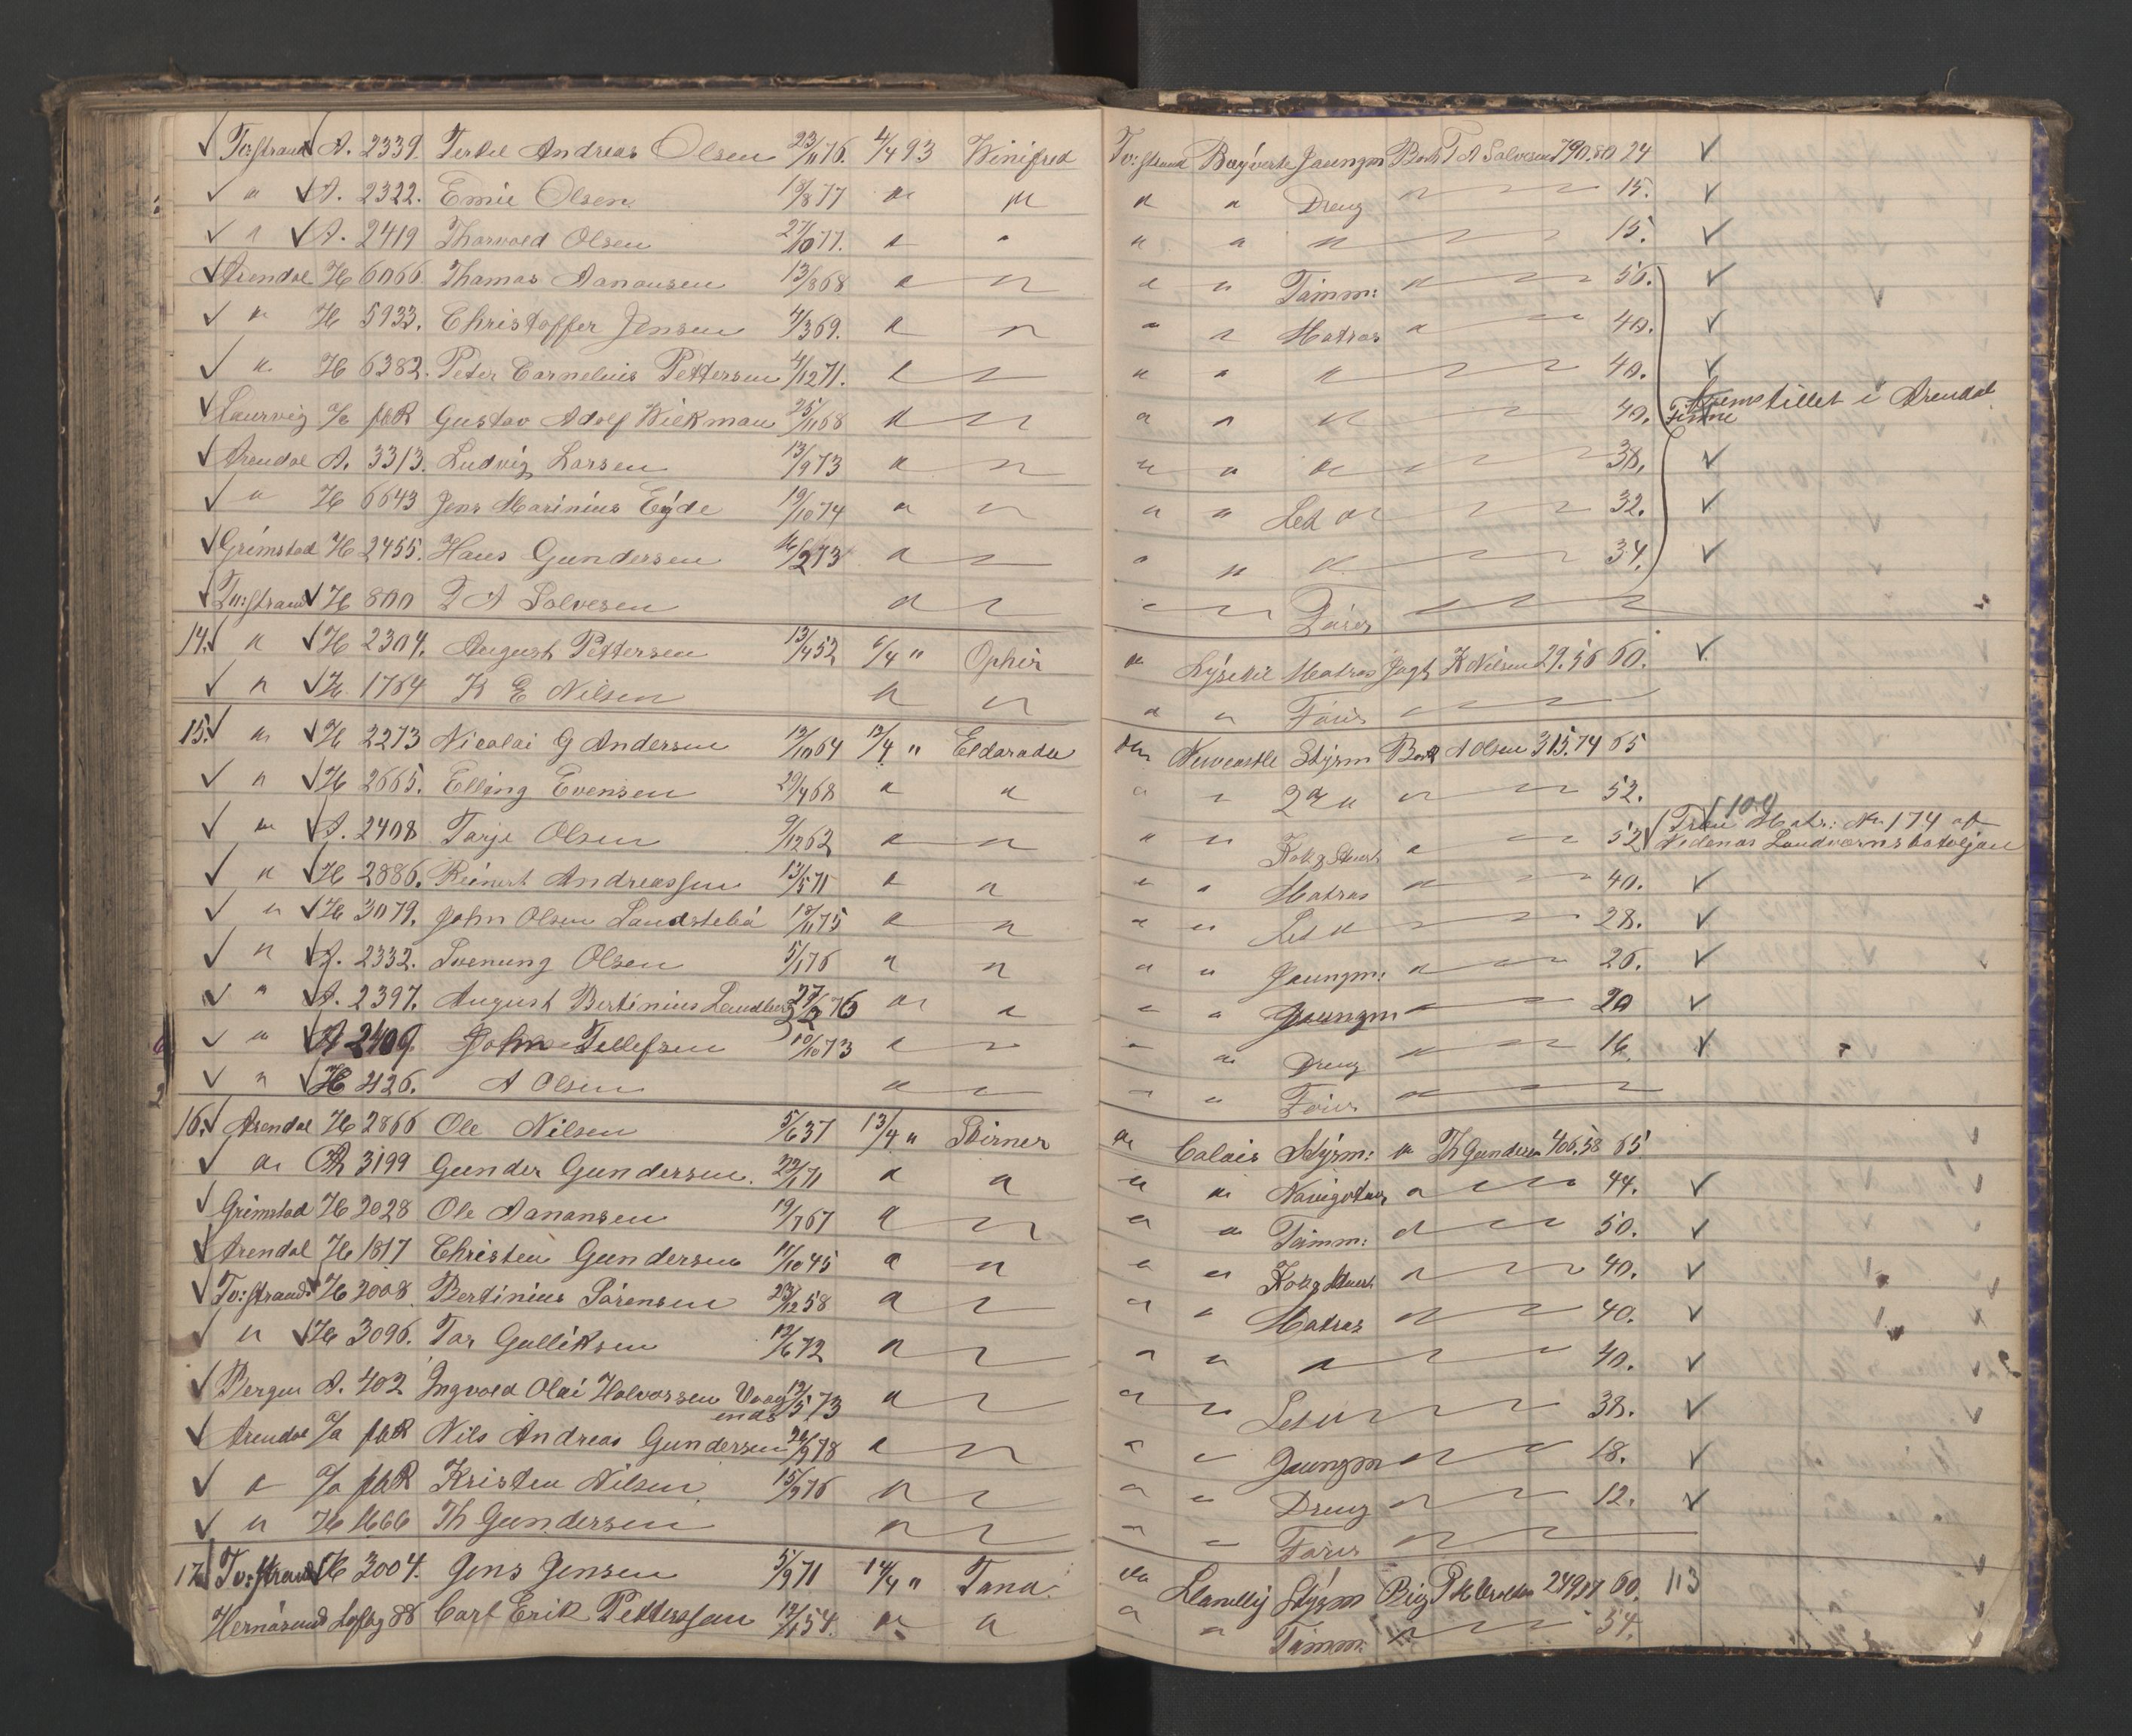 Tv:strand A. 2339. Terkel Andreas Olsen 23/11 76. 4/4 93 Winifred Tv:strand Jaungm Bark T A Salvesen 790.80 24
" A. 2322. Emil Olsen 19/8 77 " " " " Dreng " 15.
" A. 2419 Thorvald Olsen 27/10 77. " " " " " 15.
Arendal H 6066. Thomas Aanansen 13/8 68 " " " " Tømm: " 56.
" H 5933. Christoffer Jensen 4/3 69. " " " " Matros " 40.
" H 6382. Peter Cornelius Pettersen 4/12 71. " " " " " 40.
Laurvig a/a pbR Gustav Adolf Wiekman 25/11 68 " " " " " 40. Fremstillet i Arendal
Arendal A. 3313. Ludvig Larsen 13/9 73 " " " " " 38,
" H 6643 Jens Marinius Eyde 19/10 74 " " " " Let " 32.
Grimstad H 2455. Hans Gundersen 16/2 73 " " " " " 34.
Tv:strand H 800 T A Solvesen " " " " Fører "
14. " H 2304. August Pettersen 13/4 52 6/4 " Ophir " Lysekil Matros Jagt K Nilsen 29.56 60.
" H. 1764 K E Nilsen " " " " Fører
15. " H 2273 Nicolai G Andersen 12/10 64 12/4 " Eldorado " Newcastle Styrm Bark A Olsen 315.74 65
" H 2665. Elling Evensen 29/4 68 " " " " 2den " 52.
" A. 2408 Tarje Olsen 9/12 62 " " " " Kok & Stuert " 52 Matr: No 174 af Nedenæs Landværnsbataljon
" H 2886. Reinert Andreassen 13/5 71 " " " " Matros " 40.
" H 3079. John Olsen Landstebø 18/11 75 " " " " Let " 28.
" A. 2332. Svenung Olsen 5/1 76 " " " " Jaungm: " 26.
" A. 2397. August Bertinius 27/2 76 " " " " Jaungm " 20
" A 2409. John Tellefsen 10/10 73 " " " " Dreng " 16.
" H 2126. A Olsen " " " " Fører "
16. Arendal H 2866 Ole Nilsen 5/6 37 13/4 " Skirner " Calais Styrm: " Th Gundersen 406.58 65
" A 3199 Gunder Gundersen. 22/1 71 " " " " Navigatør " 44.
Grimstad H 2028 Ole Aanansen 19/7 67 " " " " Tømm: " 50.
Arendal H 1817 Christen Gundersen 11/10 45 " " " " Kok & Stuert " 40.
Tv:strand H 2008 Bertinius Sørensen 23/12 58 " " " " Matros " 40.
" H 3096. Tor Gulliksen 12/6 72 " " " " " 40.
Bergen A. 402 Ingvald Olai Halvorsen Vaagenes 12/5 73 " " " " Let " 38.
Arendal a/a pbR Nils Andreas Gundersen 26/9 78 " " " " Jaungm " 18.
" a/a pbR Kristen Nilsen 15/9 76 " " " " Dreng " 12.
" H 1666 Th Gundersen " " " " Fører "
17. Tv:strand H 3004. Jens Jensen 5/9 71 14/4 " Tana. " Llanelly Styrm Brig 60. 113
Hernösand 88 Carl Erik Pettersson 12/1 54. " " " " Tømm: " 54.